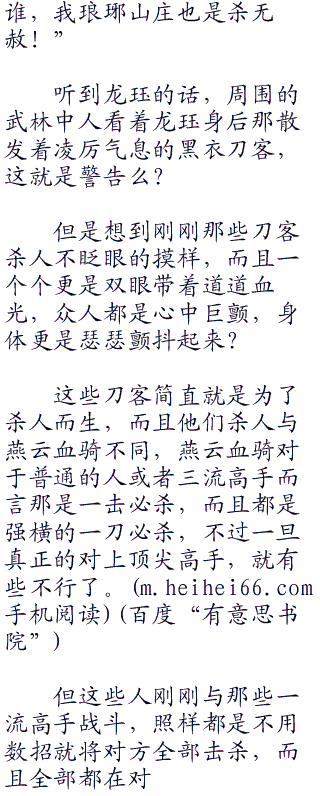 谁，我琅琊山庄也是杀无
赦！”
听到龙珏的话，周围的
武林中人看着龙珏身后那散
发着凌厉气息的黑衣刀客，
这就是警告么？
但是想到刚刚那些刀客
杀人不眨眼的摸样，而且一
个个更是双眼带着道道血
光，众人都是心中巨颤，身
体更是瑟瑟颤抖起来？
这些刀客简直就是为了
杀人而生，而且他们杀人与
燕云血骑不同，燕云血骑对
于普通的人或者三流高手而
言那是一击必杀，而且都是
强横的一刀必杀，不过一旦
真正的对上顶尖高手，就有
些不行了。(m.heihei66.com
手机阅读)(百度“有意思书
院”)
但这些人刚刚与那些一
流高手战斗，照样都是不用
数招就将对方全部击杀，而
且全部都在对